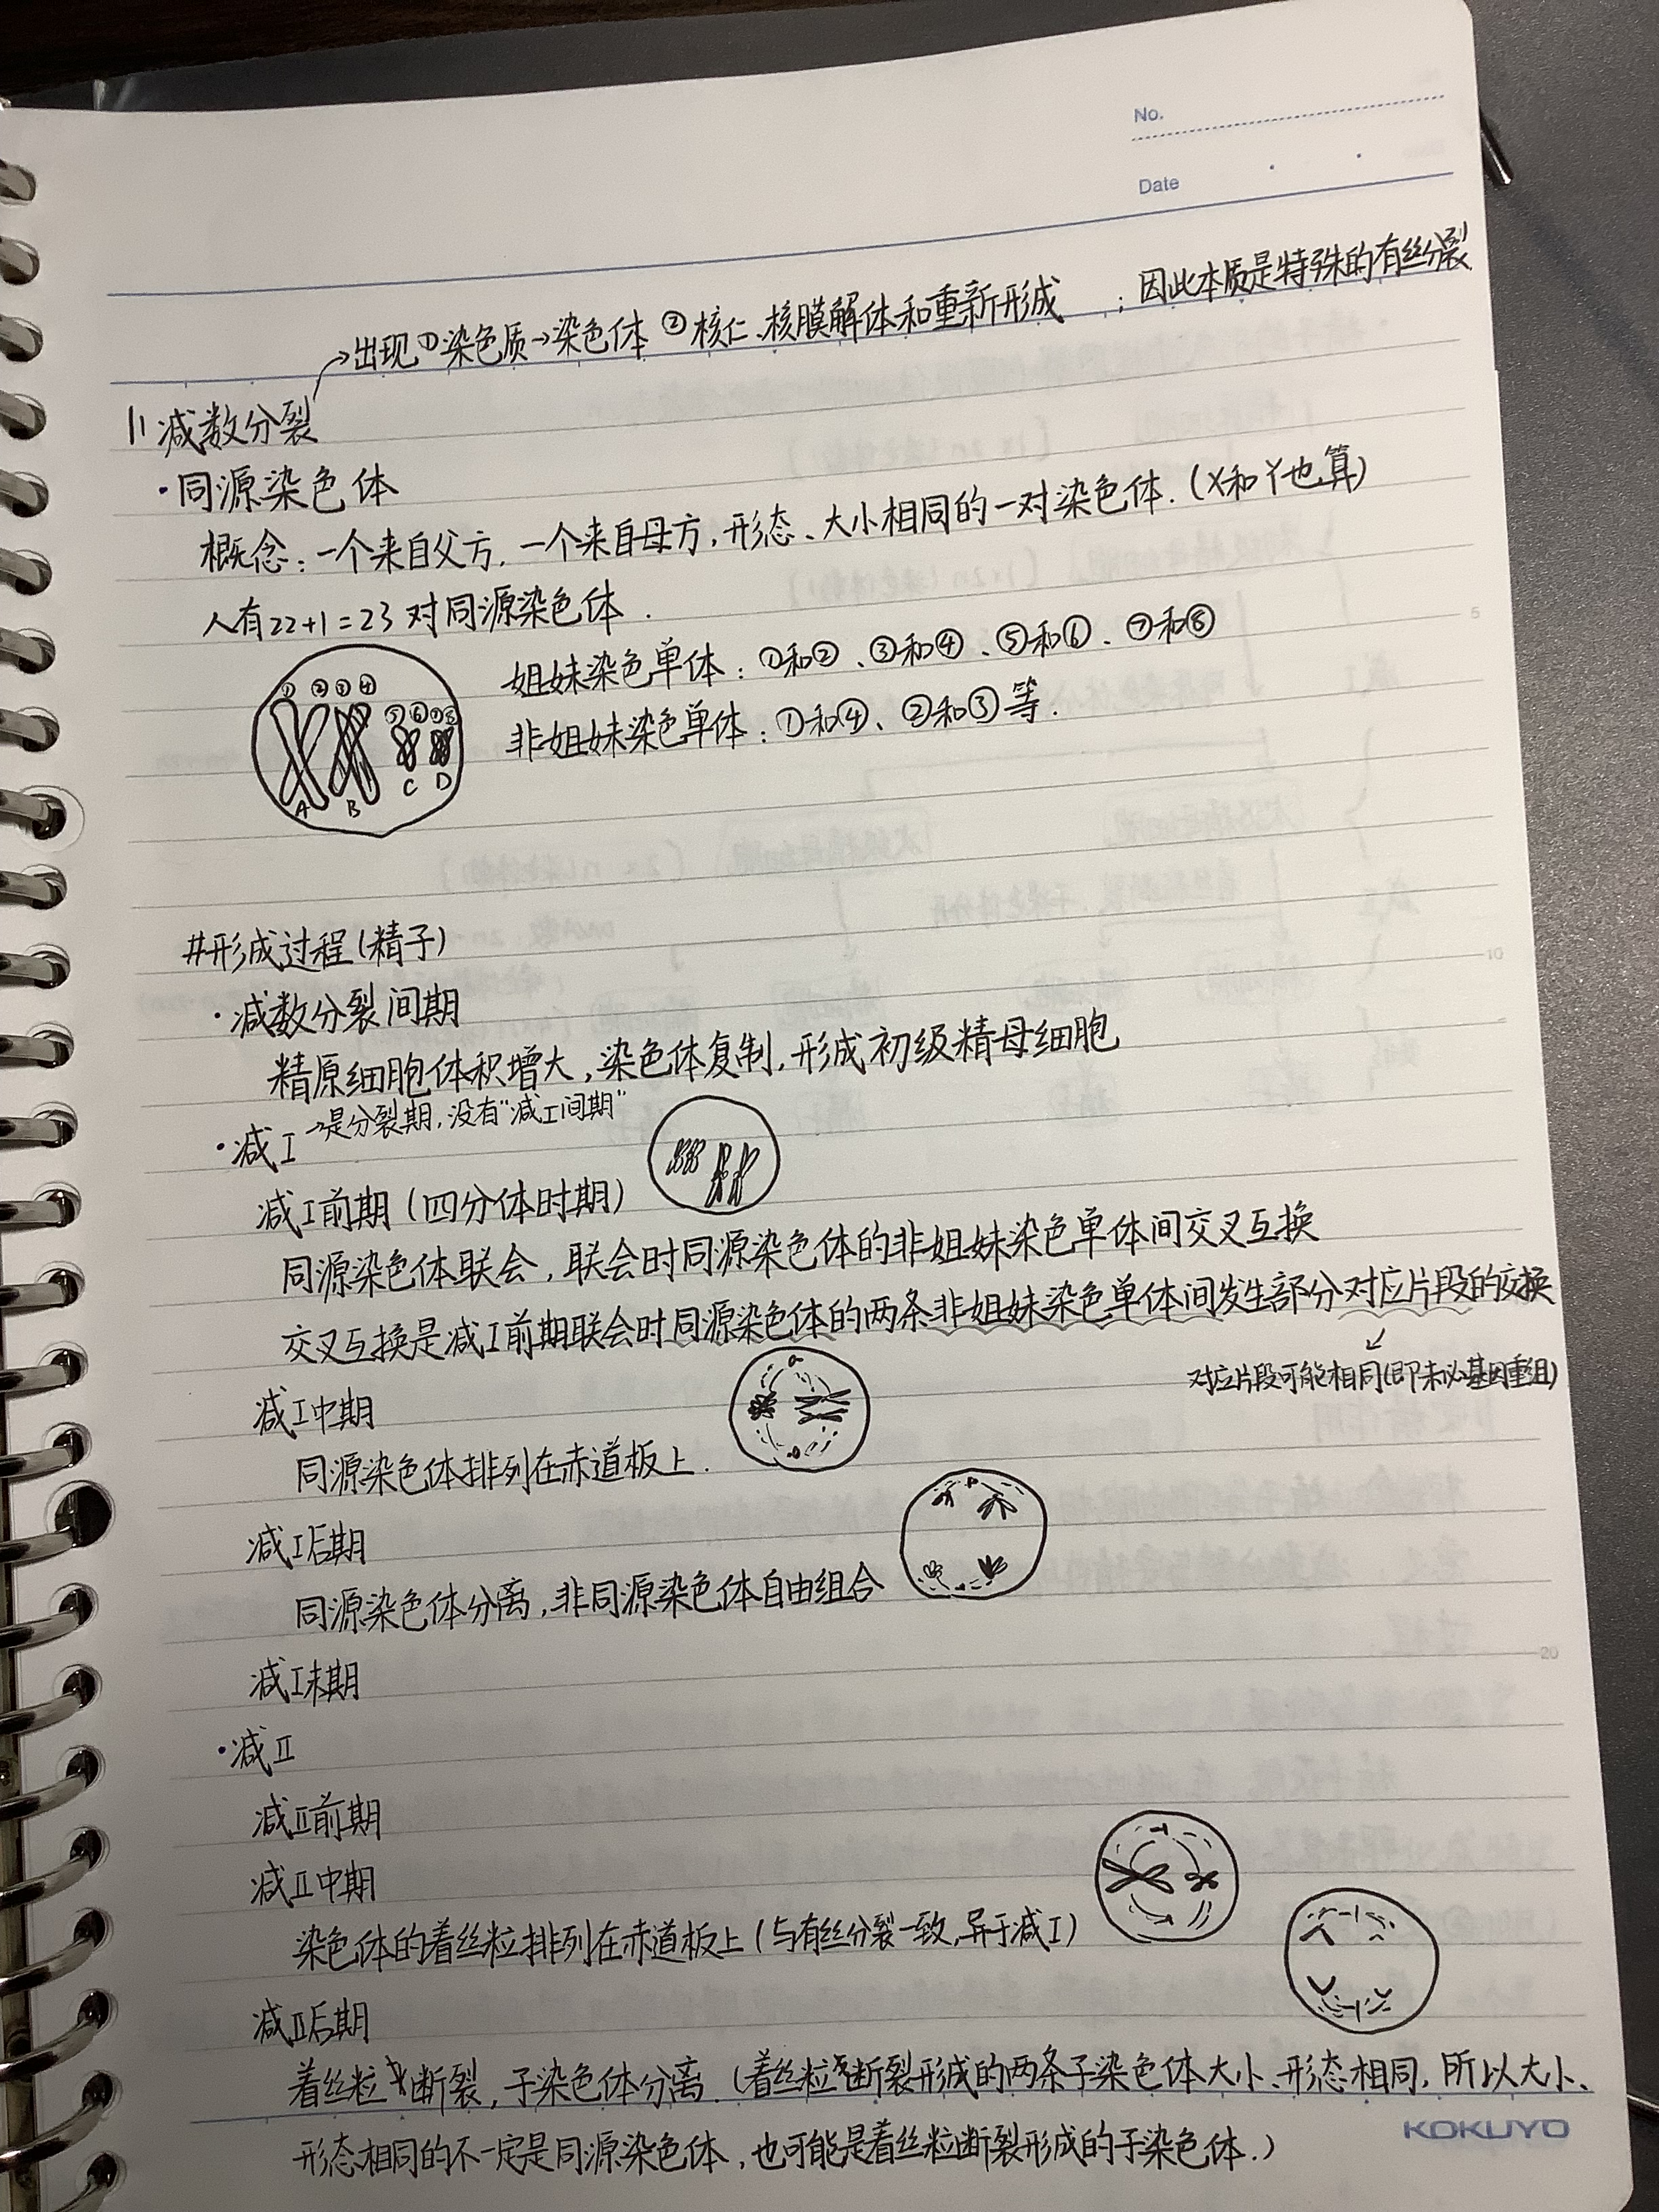 No.
Date
→出现①染色质→染色体 ②核仁、核膜解体和重新形成 ；因此本质是特殊的有丝分裂
11 减数分裂
·同源染色体
概念：一个来自父方，一个来自母方，形态、大小相同的一对染色体．(X和Y也算)
人有22+1=23对同源染色体．
① ② ③ ④
⑤ ⑥ ⑦ ⑧
A B C D
姐妹染色单体：①和②、③和④、⑤和⑥、⑦和⑧
非姐妹染色单体：①和④、②和③等．
#形成过程(精子)
·减数分裂间期
精原细胞体积增大，染色体复制，形成初级精母细胞
·减I →是分裂期，没有“减I间期”
减I前期(四分体时期)
同源染色体联会，联会时同源染色体的非姐妹染色单体间交叉互换
交叉互换是减I前期联会时同源染色体的两条非姐妹染色单体间发生部分对应片段的交换
对应片段可能相同(即未必基因重组)
减I中期
同源染色体排列在赤道板上．
减I后期
同源染色体分离，非同源染色体自由组合
减I末期
·减II
减II前期
减II中期
染色体的着丝粒排列在赤道板上(与有丝分裂一致，异于减I)
减II后期
着丝粒断裂，子染色体分离．(着丝粒断裂形成的两条子染色体大小、形态相同，所以大小、
形态相同的不一定是同源染色体，也可能是着丝粒断裂形成的子染色体．)
5
10
20
KOKUYO